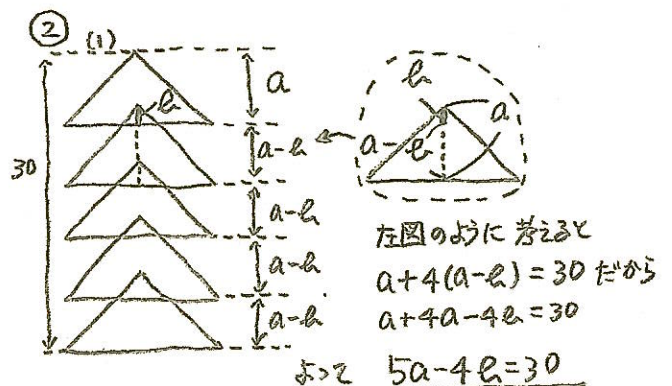 ② (1)
a
b
a-b
30
a-b
a-b
a-b
b
a
a-b
左図のように考えると
a+4(a-b)=30 だから
a+4a-4b=30
よって 5a-4b=30